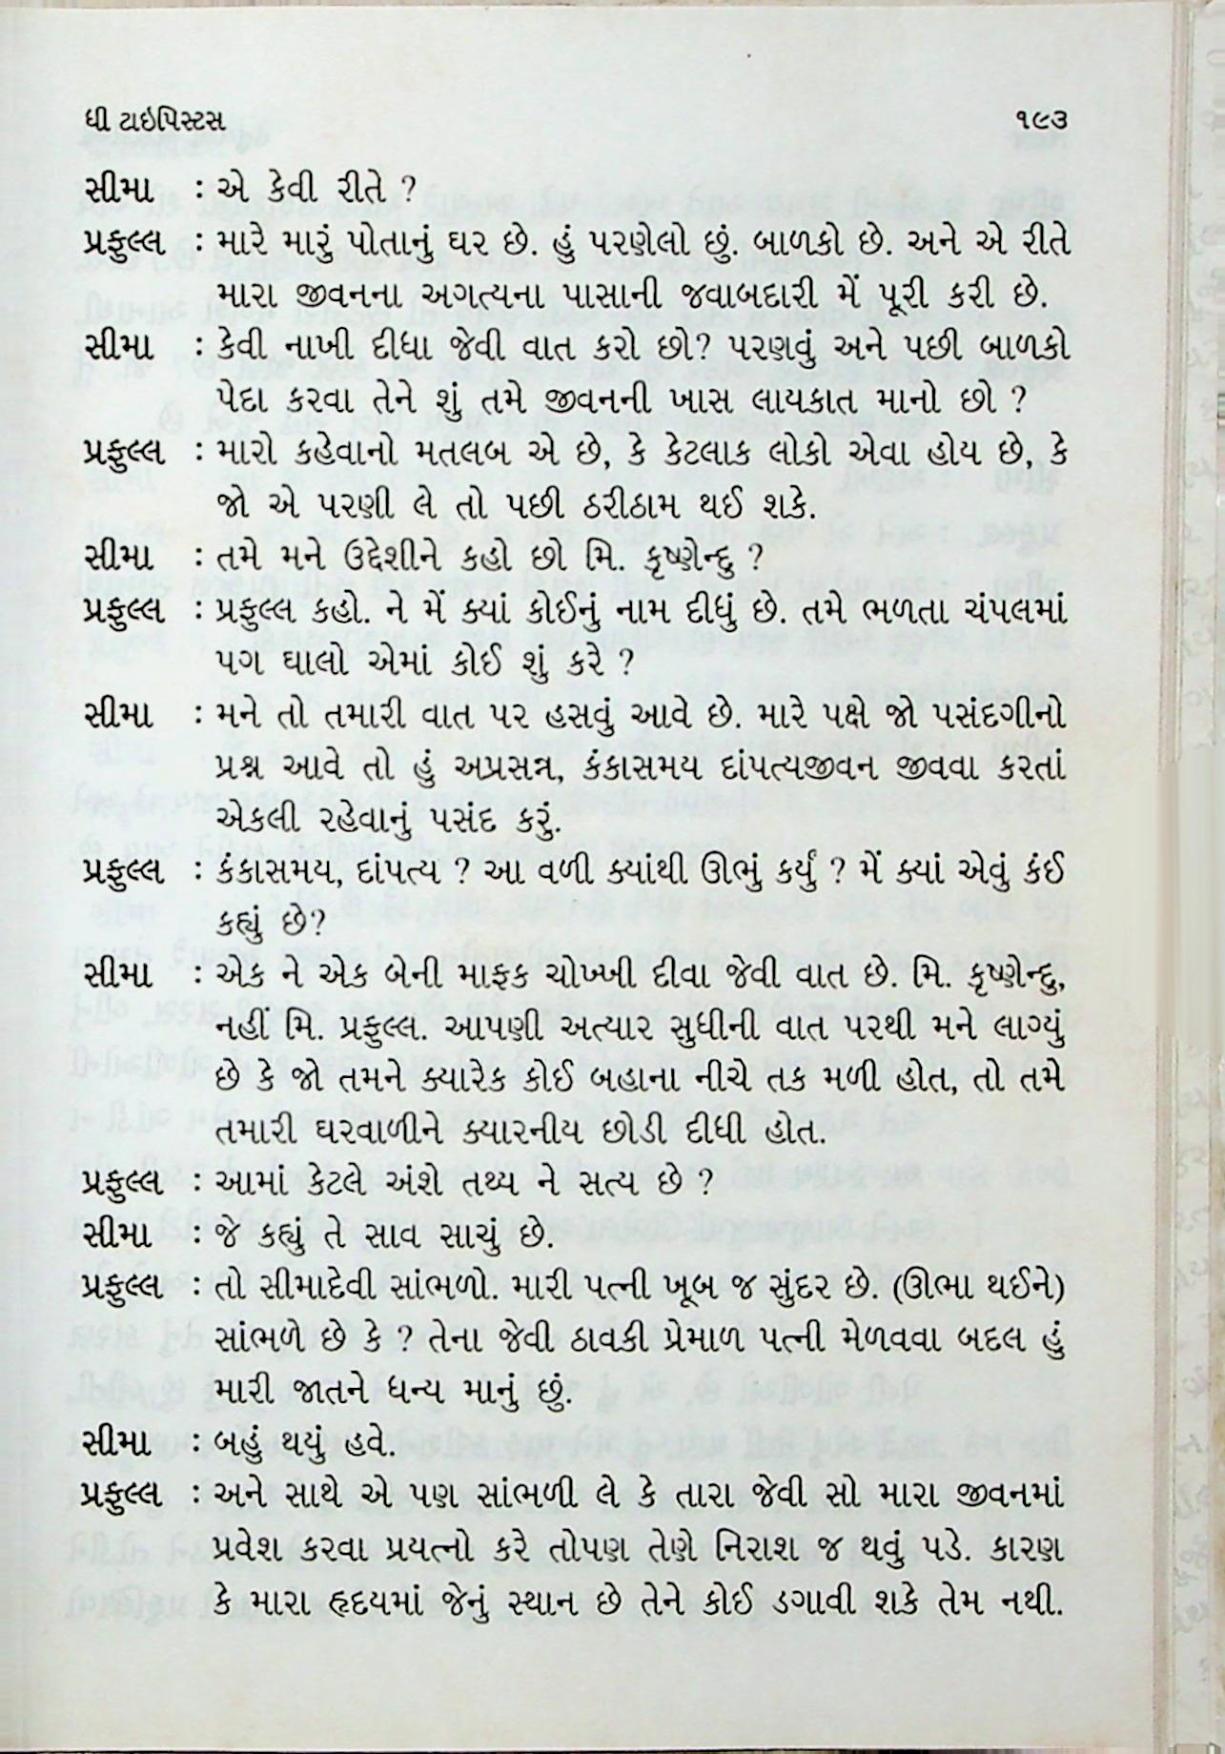 ધી ટાઇપિસ્ટસ ૧૯૩
સીમા : એ કેવી રીતે ?
પ્રફુલ્લ : મારે મારું પોતાનું ઘર છે. હું પરણેલો છું. બાળકો છે. અને એ રીતે
મારા જીવનના અગત્યના પાસાની જવાબદારી મેં પૂરી કરી છે.
સીમા : કેવી નાખી દીધા જેવી વાત કરો છો? પરણવું અને પછી બાળકો
પેદા કરવા તેને શું તમે જીવનની ખાસ લાયકાત માનો છો ?
પ્રફુલ્લ : મારો કહેવાનો મતલબ એ છે, કે કેટલાક લોકો એવા હોય છે, કે
જો એ પરણી લે તો પછી ઠરીઠામ થઈ શકે.
સીમા : તમે મને ઉદ્દેશીને કહો છો મિ. કૃષ્ણેન્દુ ?
પ્રફુલ્લ : પ્રફુલ્લ કહો. ને મેં ક્યાં કોઈનું નામ દીધું છે. તમે ભળતા ચંપલમાં
પગ ઘાલો એમાં કોઈ શું કરે ?
સીમા : મને તો તમારી વાત પર હસવું આવે છે. મારે પક્ષે જો પસંદગીનો
પ્રશ્ન આવે તો હું અપ્રસન્ન, કંકાસમય દાંપત્યજીવન જીવવા કરતાં
એકલી રહેવાનું પસંદ કરું.
પ્રફુલ્લ : કંકાસમય, દાંપત્ય ? આ વળી ક્યાંથી ઊભું કર્યું ? મેં ક્યાં એવું કંઈ
કહ્યું છે?
સીમા : એક ને એક બેની માફક ચોખ્ખી દીવા જેવી વાત છે. મિ. કૃષ્ણેન્દુ,
નહીં મિ. પ્રફુલ્લ. આપણી અત્યાર સુધીની વાત પરથી મને લાગ્યું
છે કે જો તમને ક્યારેક કોઈ બહાના નીચે તક મળી હોત, તો તમે
તમારી ઘરવાળીને ક્યારનીય છોડી દીધી હોત.
પ્રફુલ્લ : આમાં કેટલે અંશે તથ્ય ને સત્ય છે ?
સીમા : જે કહ્યું તે સાવ સાચું છે.
પ્રફુલ્લ : તો સીમાદેવી સાંભળો. મારી પત્ની ખૂબ જ સુંદર છે. (ઊભા થઈને)
સાંભળે છે કે ? તેના જેવી ઠાવકી પ્રેમાળ પત્ની મેળવવા બદલ હું
મારી જાતને ધન્ય માનું છું.
સીમા : બહું થયું હવે.
પ્રફુલ્લ : અને સાથે એ પણ સાંભળી લે કે તારા જેવી સો મારા જીવનમાં
પ્રવેશ કરવા પ્રયત્નો કરે તોપણ તેણે નિરાશ જ થવું પડે. કારણ
કે મારા હૃદયમાં જેનું સ્થાન છે તેને કોઈ ડગાવી શકે તેમ નથી.